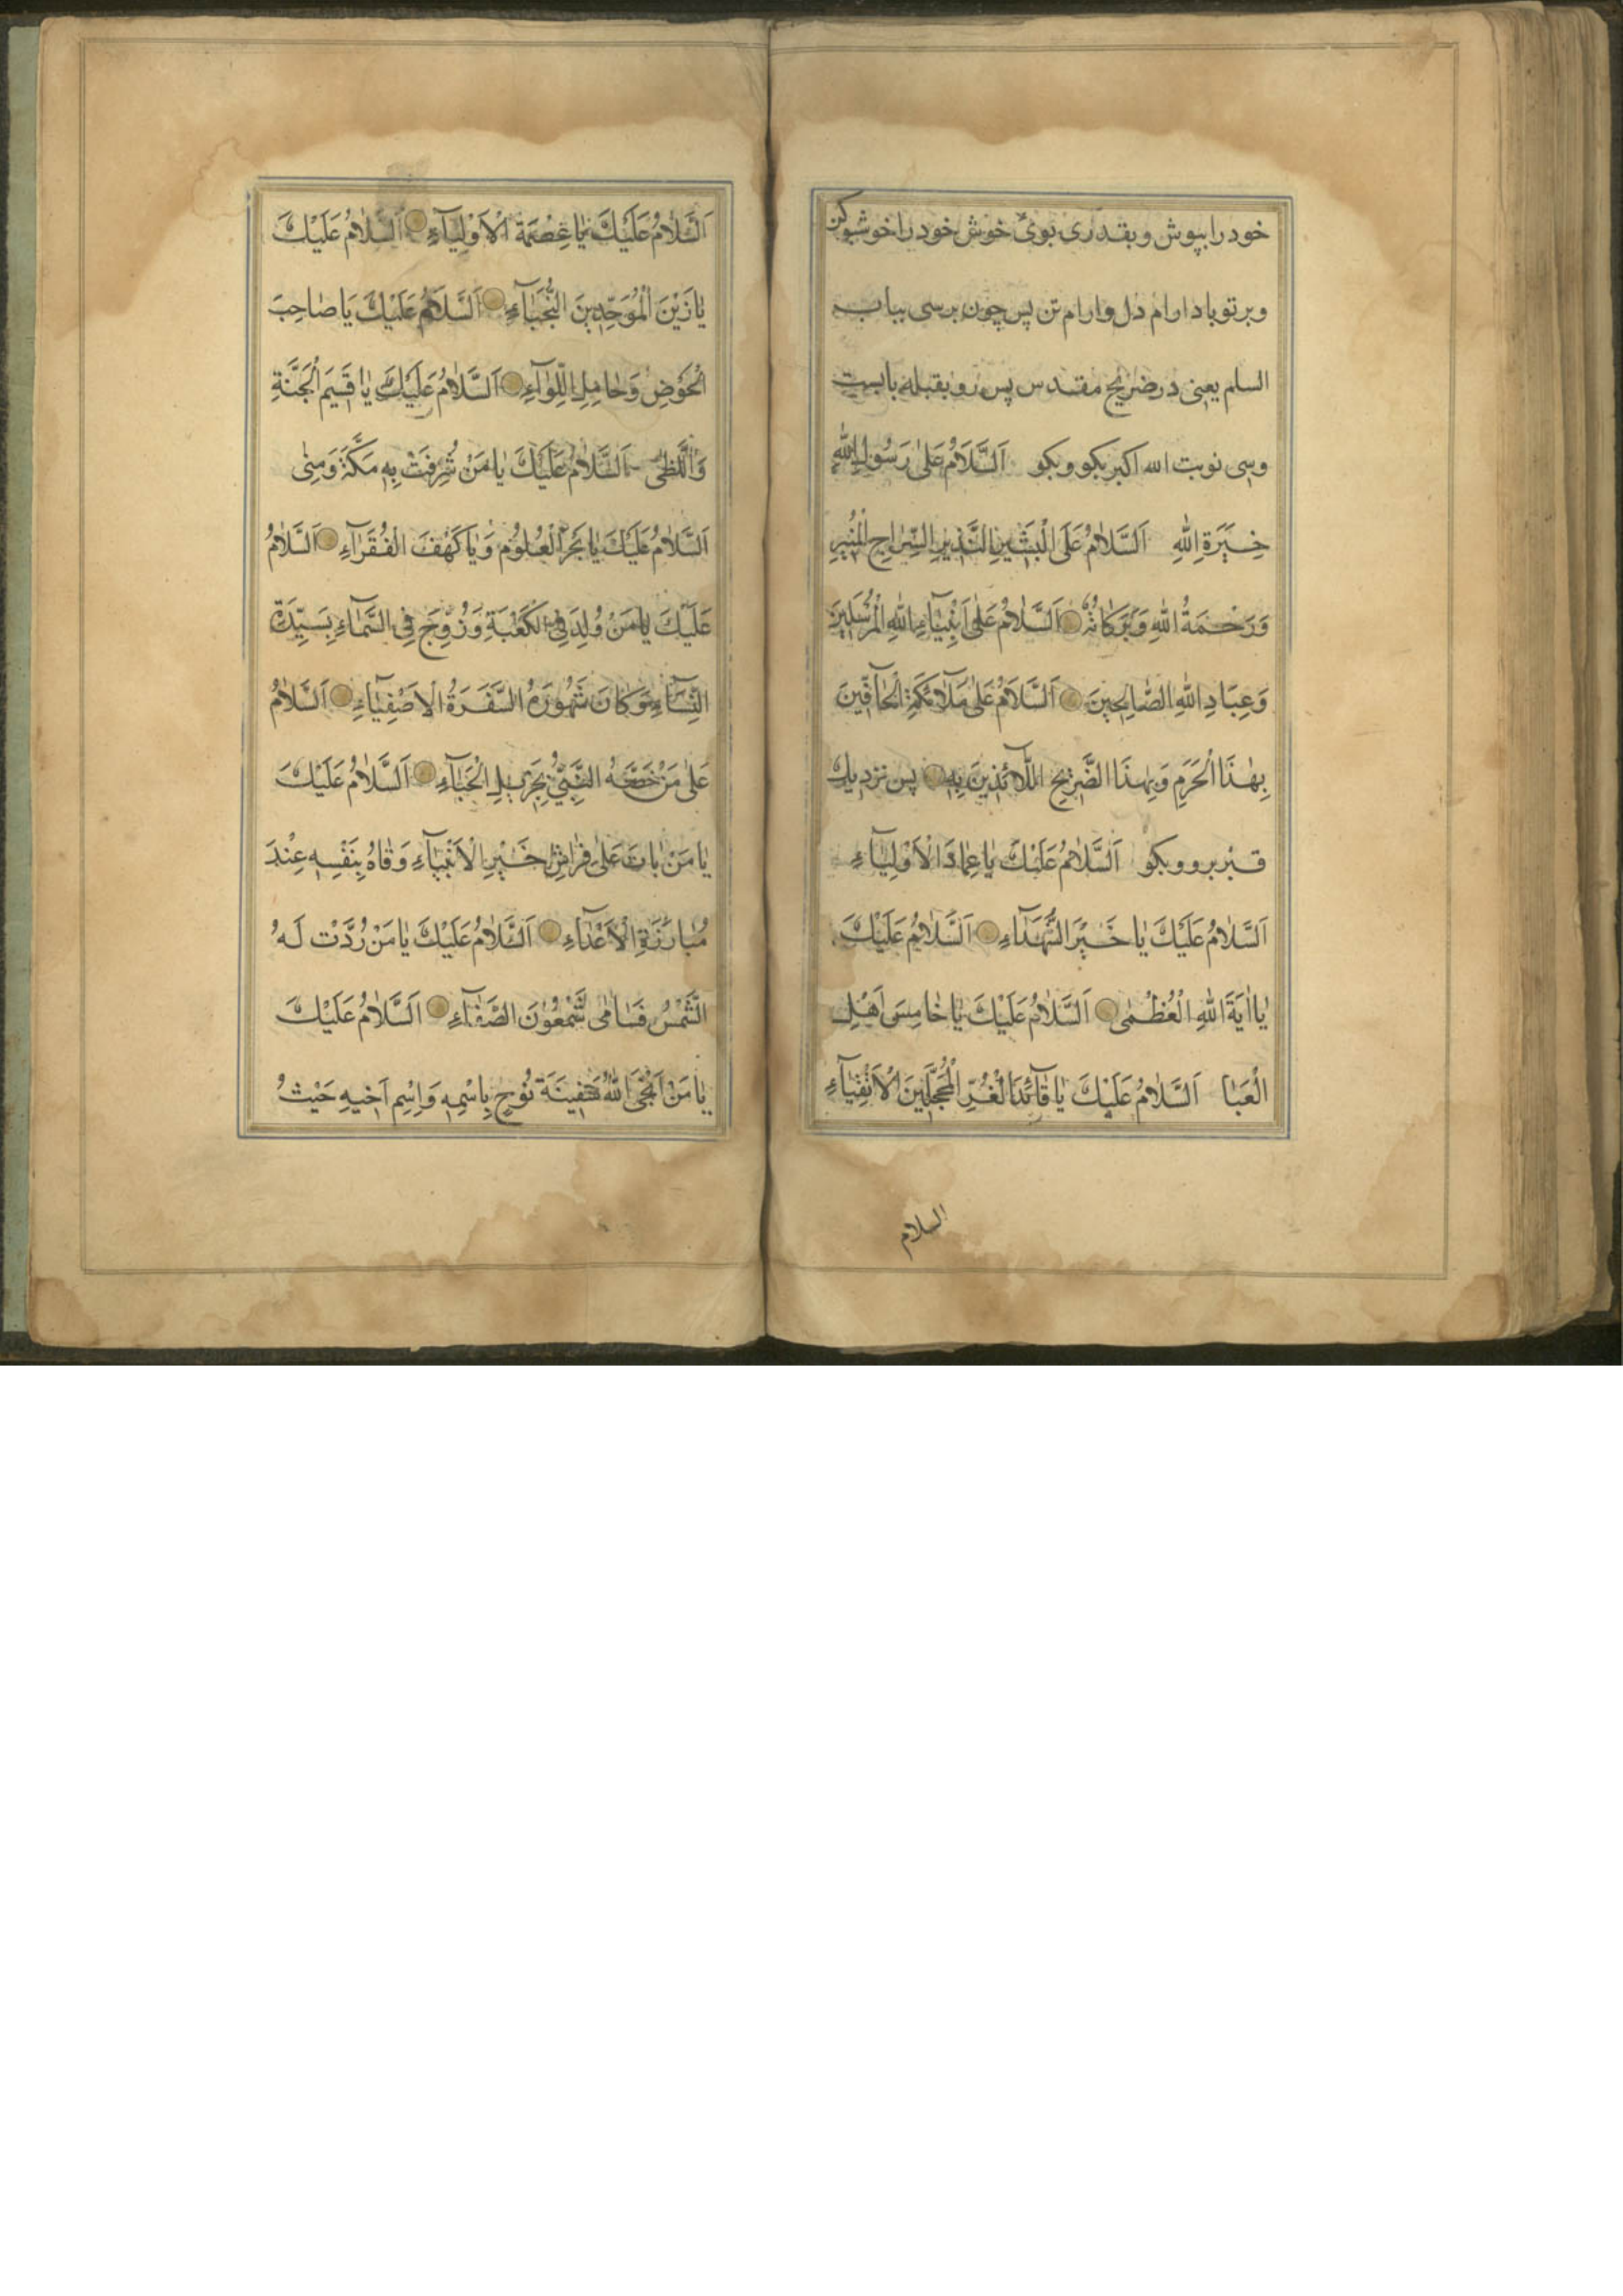 خود را بپوش و بقدری بوی خوش خود را خوشبو کن
و بر تو باد ارام دل و ارام تن پس چون برسی بباب
السلم یعنی در ضریح مقدس پس رو بقبله بایست
و سی نوبت الله اکبر بکو و بکو اَلسَّلَامُ عَلٰی رَسُولِ اللّٰهِ
خِیَرَةِ اللّٰهِ اَلسَّلَامُ عَلَی الْبَشِیرِ النَّذِیرِ السِّرَاجِ الْمُنِیرِ
وَرَحْمَةُ اللّٰهِ وَبَرَکَاتُهُ اَلسَّلَامُ عَلٰی اَنْبِیَآءِ اللّٰهِ الْمُرْسَلِینَ
وَعِبَادِ اللّٰهِ الصَّالِحِینَ اَلسَّلَامُ عَلٰی مَلَآئِکَةِ الْحَآفِّینَ
بِهٰذَا الْحَرَمِ وَبِهٰذَا الضَّرِیحِ اللَّآئِذِینَ بِهِ پس نزدیك
قبر برو و بکو اَلسَّلَامُ عَلَیْكَ یَا عِمَادَ الْاَوْلِیَآءِ
اَلسَّلَامُ عَلَیْكَ یَا خَیْرَ الشُّهَدَآءِ اَلسَّلَامُ عَلَیْكَ
یَا اٰیَةَ اللّٰهِ الْعُظْمٰی اَلسَّلَامُ عَلَیْكَ یَا خَامِسَ اَهْلِ
الْعَبَا اَلسَّلَامُ عَلَیْكَ یَا قَآئِدَ الْغُرِّ الْمُحَجَّلِینَ الْاَتْقِیَآءِ
السلام
اَلسَّلَامُ عَلَیْكَ یَا عِصْمَةَ الْاَوْلِیَآءِ اَلسَّلَامُ عَلَیْكَ
یَا زَیْنَ الْمُوَحِّدِینَ النُّجَبَآءِ اَلسَّلَامُ عَلَیْكَ یَا صَاحِبَ
الْحَوْضِ وَحَامِلِ اللِّوَآءِ اَلسَّلَامُ عَلَیْكَ یَا قَسِیَمَ الْجَنَّةِ
وَاللَّظٰی اَلسَّلَامُ عَلَیْكَ یَا مَنْ شُرِّفَتْ بِهِ مَکَّةَ وَمِنٰی
اَلسَّلَامُ عَلَیْكَ یَا بَحْرَ الْعُلُوُمِ وَیَا کَهْفَ الْفُقَرَآءِ اَلسَّلَامُ
عَلَیْكَ یَا مَنْ وُلِدَ فِی الْکَعْبَةِ وَزُوِّجَ فِی السَّمَآءِ بِسَیِّدَةِ
النِّسَآءِ وَکَانَ شُهُودُهُ السَّفَرَةُ الْاَصْفِیَآءِ اَلسَّلَامُ
عَلٰی مَنْ خَصَّهُ النَّبِیُّ بِجَزِیلِ الْحَبَآءِ اَلسَّلَامُ عَلَیْكَ
یَا مَنْ بَاتَ عَلٰی فِرَاشِ خَیْرِ الْاَنْبِیَآءِ وَقَاهُ بِنَفْسِهِ عِنْدَ
مُبَارَزَةِ الْاَعْدَآءِ اَلسَّلَامُ عَلَیْكَ یَا مَنْ رُدَّتْ لَهُ
الشَّمْسُ فَسَامٰی شَّمْعُوْنَ الصَّفَآءِ اَلسَّلَامُ عَلَیْكَ
یَا مَنْ اَنْجَی اللّٰهُ سَفِینَةَ نُوْحٍ بِاسْمِهِ وَاِسْمِ اَخِیهِ حَیْثُ